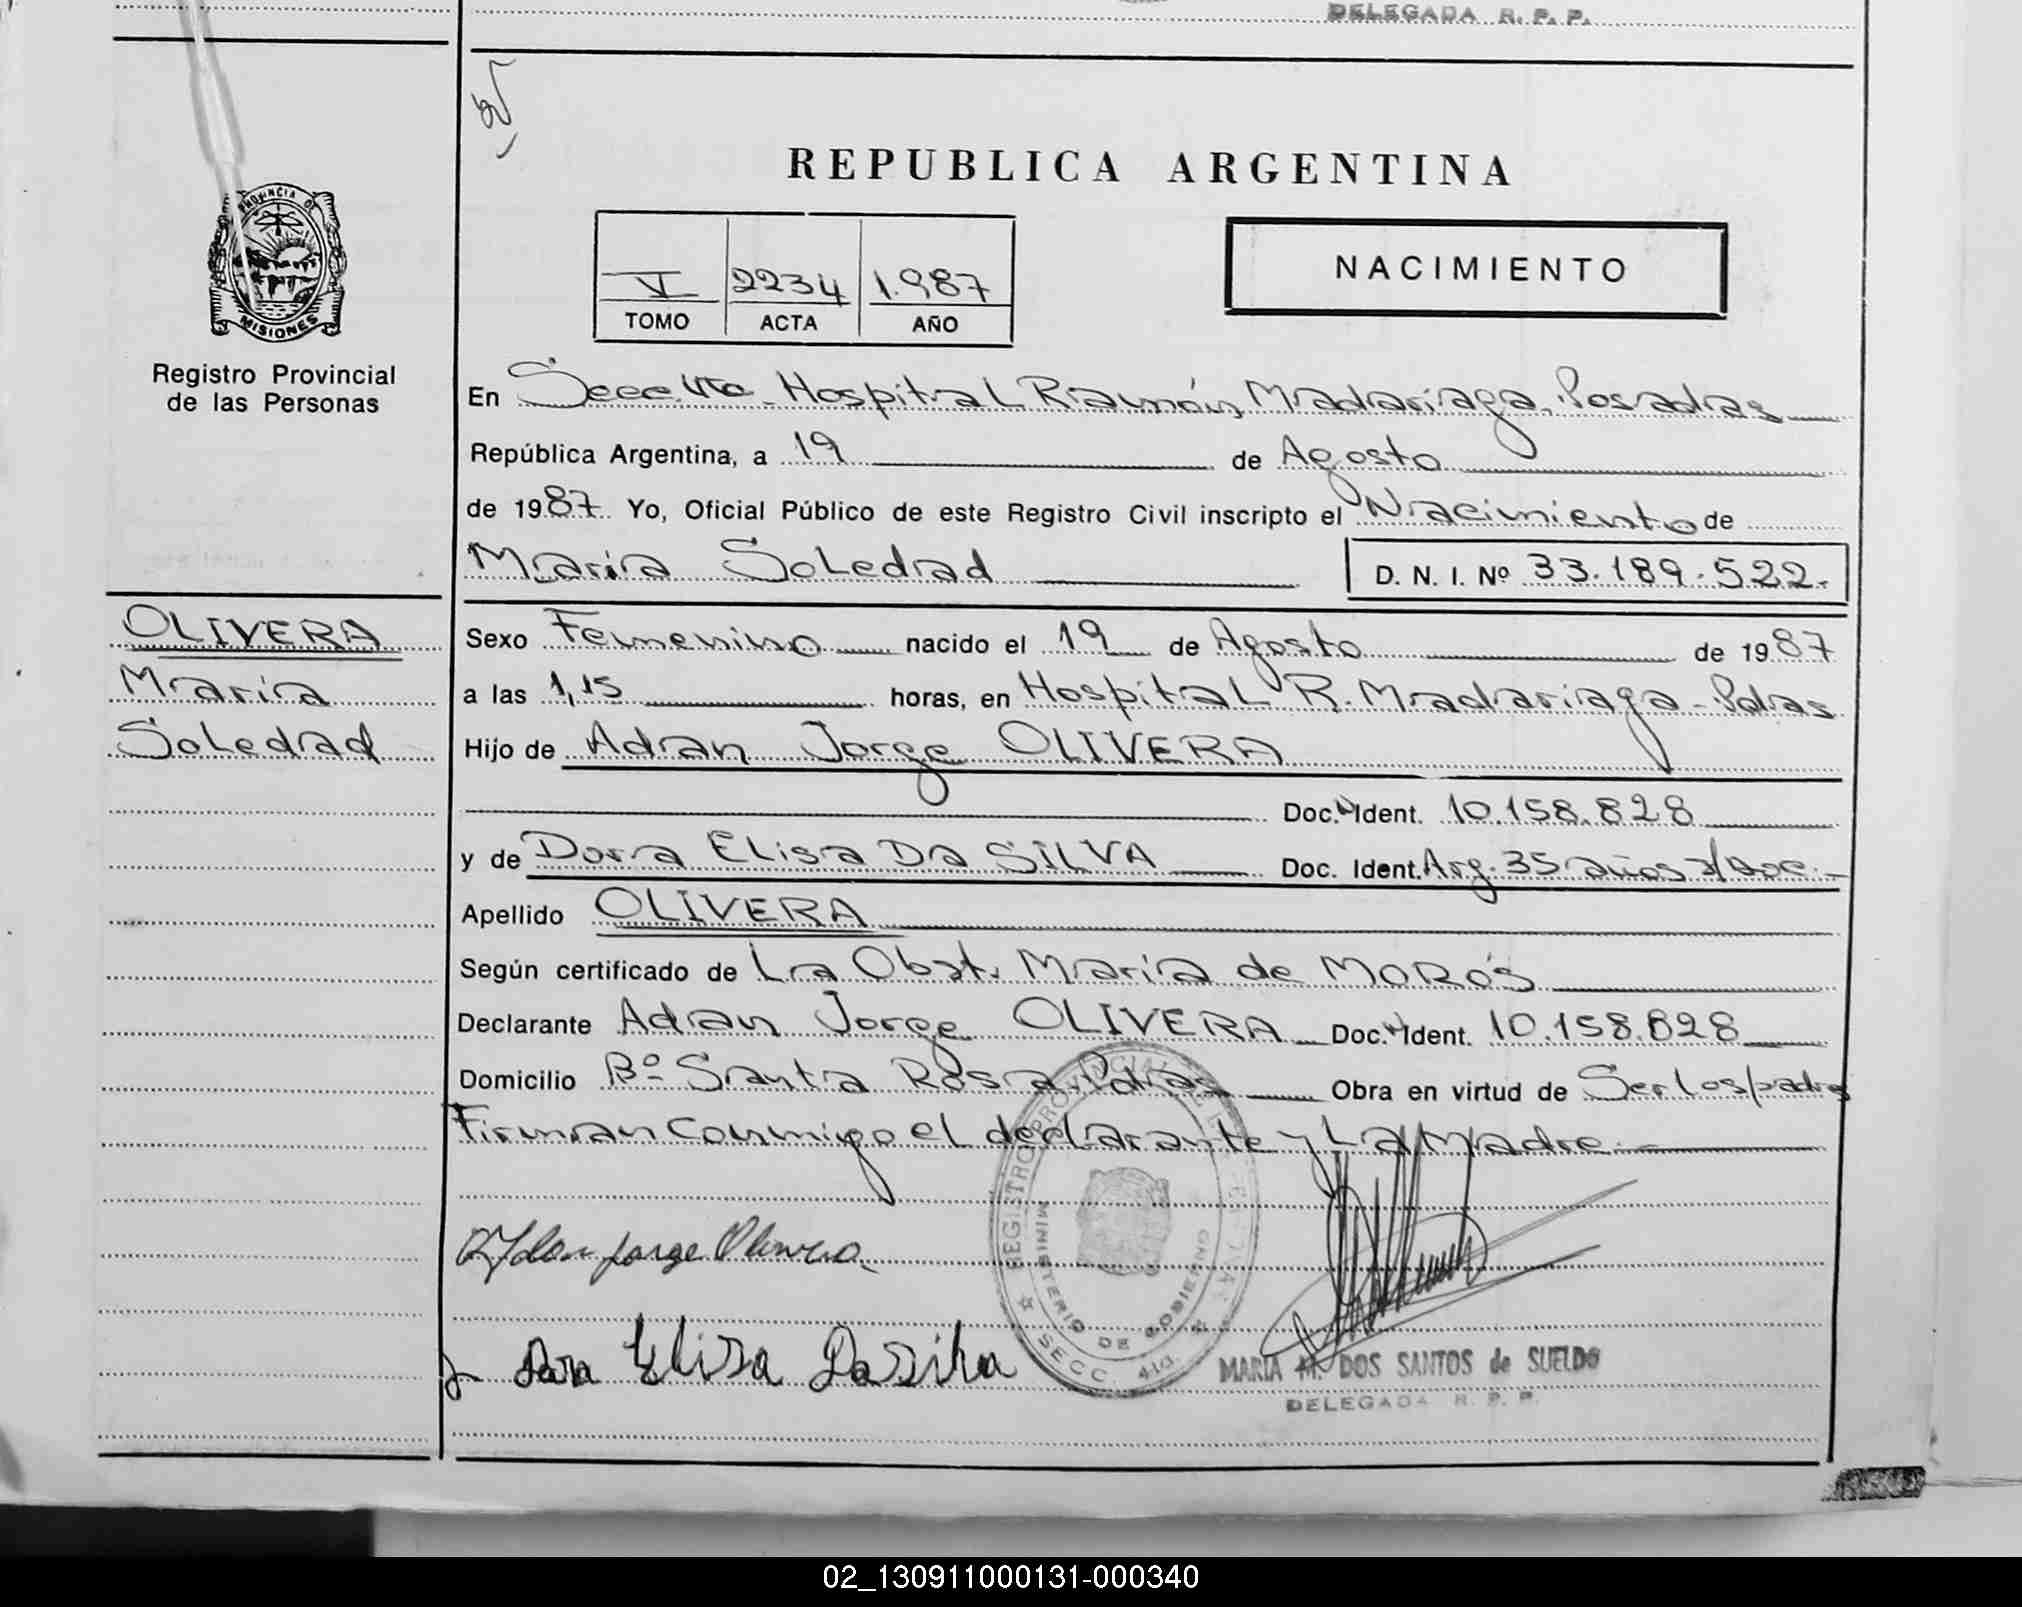 DELEGADA R. P. P.
REPUBLICA ARGENTINA
PROVINCIA DE
MISIONES
Registro Provincial
de las Personas
V 2234 1.987
TOMO ACTA AÑO
NACIMIENTO
En Secc. 4ta. Hospital Ramón Madariaga, Posadas
República Argentina, a 19 de Agosto
de 1987 Yo, Oficial Público de este Registro Civil inscripto el Nacimiento de
María Soledad D. N. I. Nº 33.189.522.
OLIVERA
María
Soledad
Sexo Femenino nacido el 19 de Agosto de 1987
a las 1,15 horas, en Hospital R. Madariaga - Pdas
Hijo de Adran Jorge OLIVERA
Doc. Ident. 10.158.828
y de Dora Elisa DA SILVA Doc. Ident. Arg. 35 años s/doc.
Apellido OLIVERA
Según certificado de La Obst. María de MOROS
Declarante Adran Jorge OLIVERA Doc. Ident. 10.158.828
Domicilio Bº Santa Rosa, Pdas Obra en virtud de Ser los padres
Firman conmigo el declarante y La Madre
Jorge Olivera
Dora Elisa Dasilva
REGISTRO PROVINCIAL DE LAS PERSONAS
MINISTERIO DE GOBIERNO
SECC. 4ta.
MARIA M. DOS SANTOS de SUELDO
DELEGADA R. P. P.
02_130911000131-000340